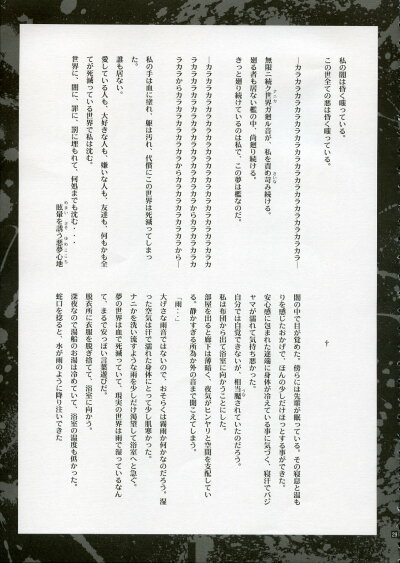 私の闇は昏く嗤っている。
この世全ての悪は昏く嗤っている。
―カラカラカラカラカラカラカラカラカラカラカラカラカラ―
無限ニ続ク世界ガ廻ル音が、私を責め苛み続ける。
廻る者も居ない檻の中、尚廻り続ける。
きっと廻り続けているのは私で、この夢は檻なのだ。
―カラカラカラカラカラカラカラカラカラカラカラカラカラ
カラカラからカラカラカラカラからカラカラカラカラから―
私の手は血に塗れ、躯は汚れ、代償にこの世界は死滅してしまっ
た。
誰も居ない。
愛している人も、大好きな人も、嫌いな人も、友達も、何もかも全
てが死滅っている世界で私は沈む。
世界に、闇に、罪に、罰に埋もれて、何処までも沈む・・・
眩暈を誘う悪夢心地
†
闇の中で目が覚めた。傍らには先輩が眠っている。その寝息と温も
りを感じたおかげで、ほんの少しだけほっとする事ができた。
安心感に包まれた途端に身体が冷えている事に気づく、寝汗でパジ
ャマが濡れて気持ち悪かった。
自分では自覚できないが、相当魘されていたのだろう。
私は布団から出て浴室に向かうことにした。
部屋を出ると廊下は薄暗く、夜気がヒンヤリと空間を支配してい
る、静かすぎる所為か外の音まで聞こえてしまう。
「雨・・」
大げさな雨音ではないので、おそらくは霧雨か何かなのだろう。湿
った空気は汗で濡れた身体にとって少し肌寒かった。
ナニかを洗い流すような雨を少しだけ渇望して浴室へと急ぐ。
夢の世界は血で死滅っていて、現実の世界は雨で湿っているなん
て、まるで安っぽい言葉遊びだ。
脱衣所に衣服を脱ぎ捨てて、浴室に向かう。
深夜なので湯船のお湯は冷めていて、浴室の温度も低かった。
蛇口を捻ると、水が雨のように降り注いできた
29